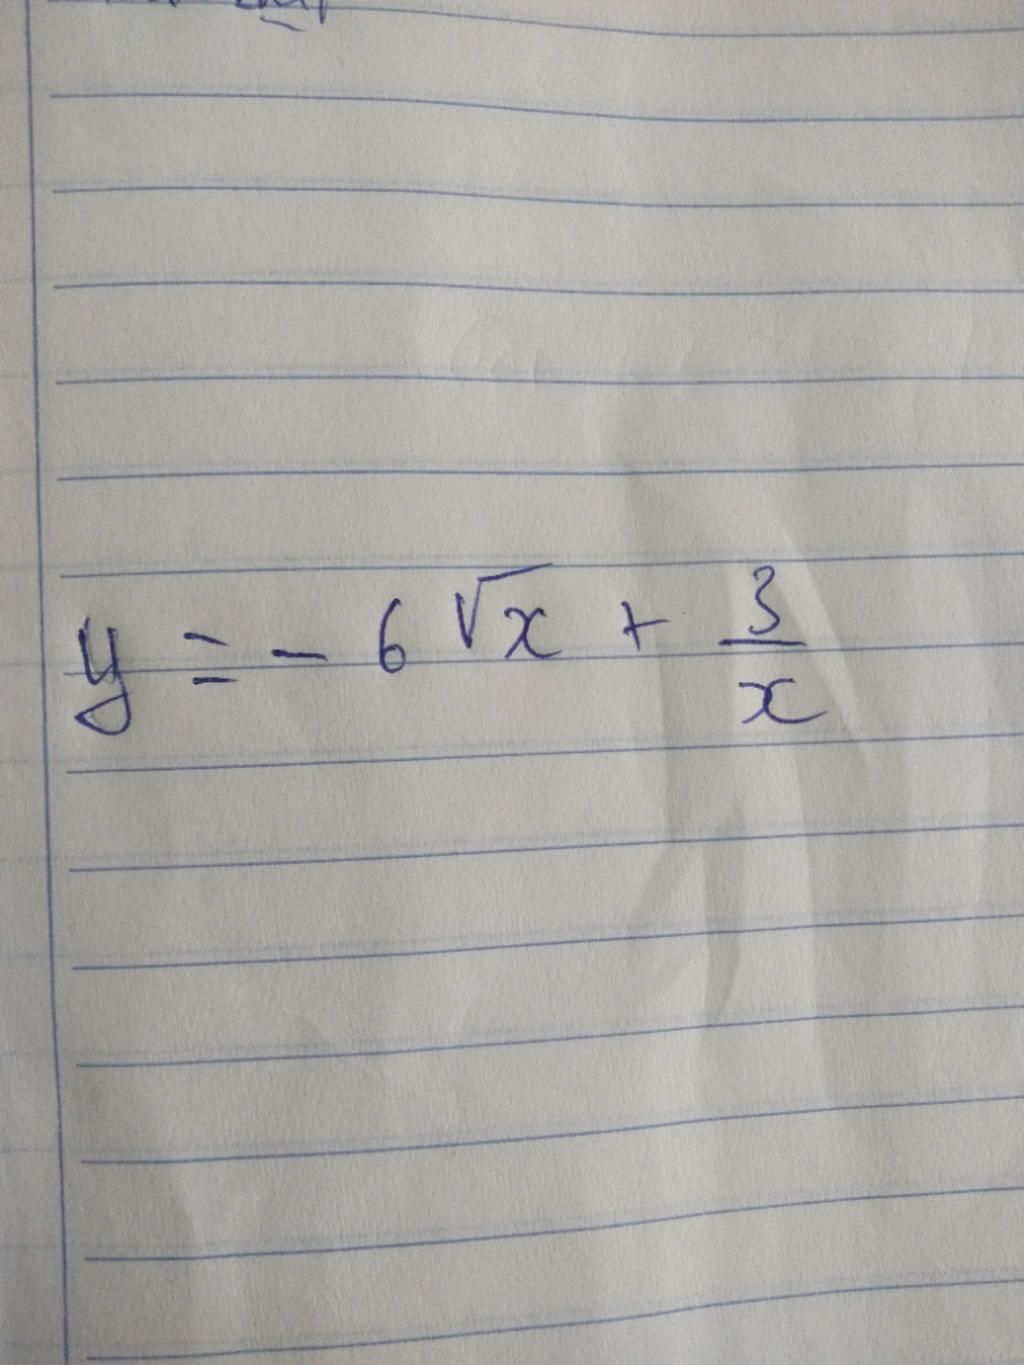 y = - 6 √x + 3/x